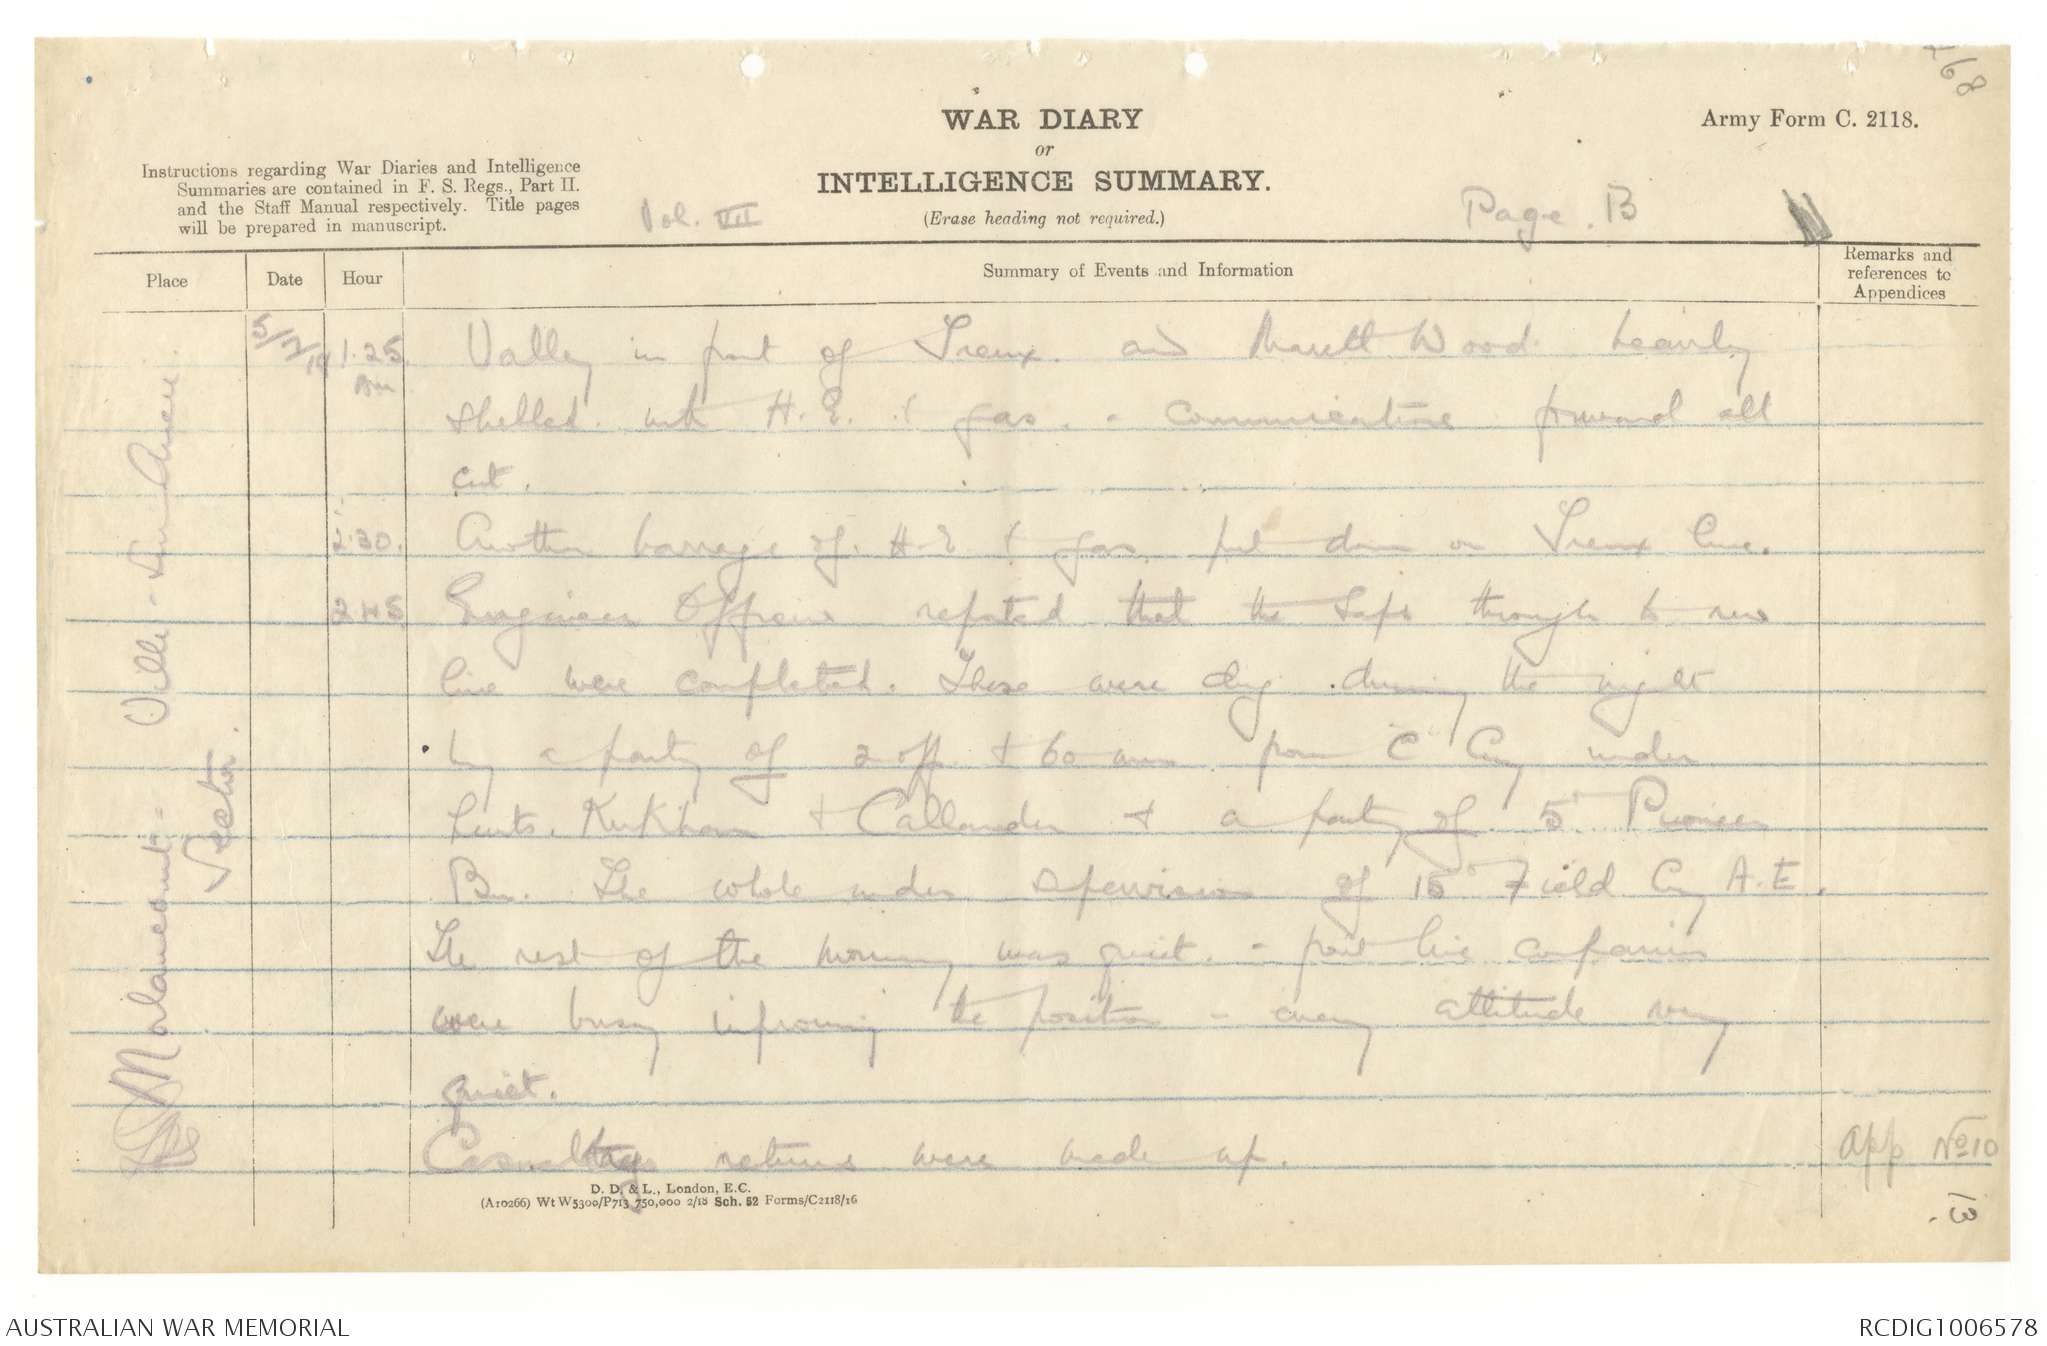 268
WAR DIARY
or
INTELLIGENCE SUMMARY.
(Erase heading not required.)
Army Form C. 2118.
Instructions regarding War Diaries and Intelligence
Summaries are contained in F. S. Regs., Part II.
and the Staff Manual respectively. Title pages
will be prepared in manuscript.
Vol. VII
Page. B
Place
Date
Hour
Summary of Events and Information
Remarks and
references to
Appendices
Morlancourt - Ville-sur-Ancre
Sector.
5/7/18 1.25 Valley in front of Treux and Marett Wood heavily
shelled with H.E. & gas. - communications forward all
cut.
2.30. Another barrage of H.E & gas put down on Treux line.
2.45 Engineer Officer reported that the saps through to new
line were completed. These were dug during the night
by a party of 2 off. & 60 men from C Coy under
Lieuts. Kirkham & Callander & a party of 5th Pioneer
Bn. The whole under supervision of 15th Field Coy A.E.
The rest of the morning was quiet. - front line companies
were busy improving the position - enemy attitude very
quiet.
Casualty returns were made up.
App No 10
D. D. & L., London, E.C.
(A10266) Wt W5300/P713 750,000 2/18 Sch. 52 Forms/C2118/16
13.
AUSTRALIAN WAR MEMORIAL
RCDIG1006578